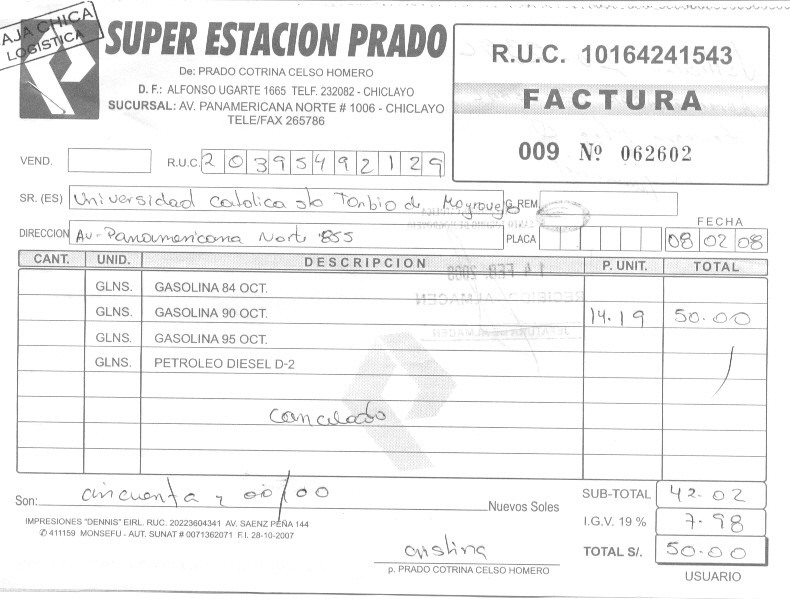 CAJA CHICA
LOGISTICA
SUPER ESTACION PRADO
De: PRADO COTRINA CELSO HOMERO
D. F.: ALFONSO UGARTE 1665 TELF. 232082 - CHICLAYO
SUCURSAL: AV. PANAMERICANA NORTE # 1006 - CHICLAYO
TELE/FAX 265786
R.U.C. 10164241543
FACTURA
009 Nº 062602
VEND. R.U.C. 20395492129
SR. (ES) Universidad Catolica sto Toribio de Mogrovejo G. REM.
FECHA
DIRECCION Av- Panamericana Norte 855 PLACA 08 02 08
CANT. UNID. DESCRIPCION P. UNIT. TOTAL
14 FEB. 2008
GLNS. GASOLINA 84 OCT.
RECIBIDO ALMACEN
GLNS. GASOLINA 90 OCT. 14.19 50.00
GLNS. GASOLINA 95 OCT.
JEFATURA DE ALMACEN
GLNS. PETROLEO DIESEL D-2
Cancelado
Son: cincuenta y 00/00 Nuevos Soles
SUB-TOTAL 42.02
I.G.V. 19 % 7.98
TOTAL S/. 50.00
IMPRESIONES "DENNIS" EIRL. RUC. 20223604341 AV. SAENZ PEÑA 144
✆ 411159 MONSEFU - AUT. SUNAT # 0071362071 F.I. 28-10-2007
cristina
p. PRADO COTRINA CELSO HOMERO
USUARIO